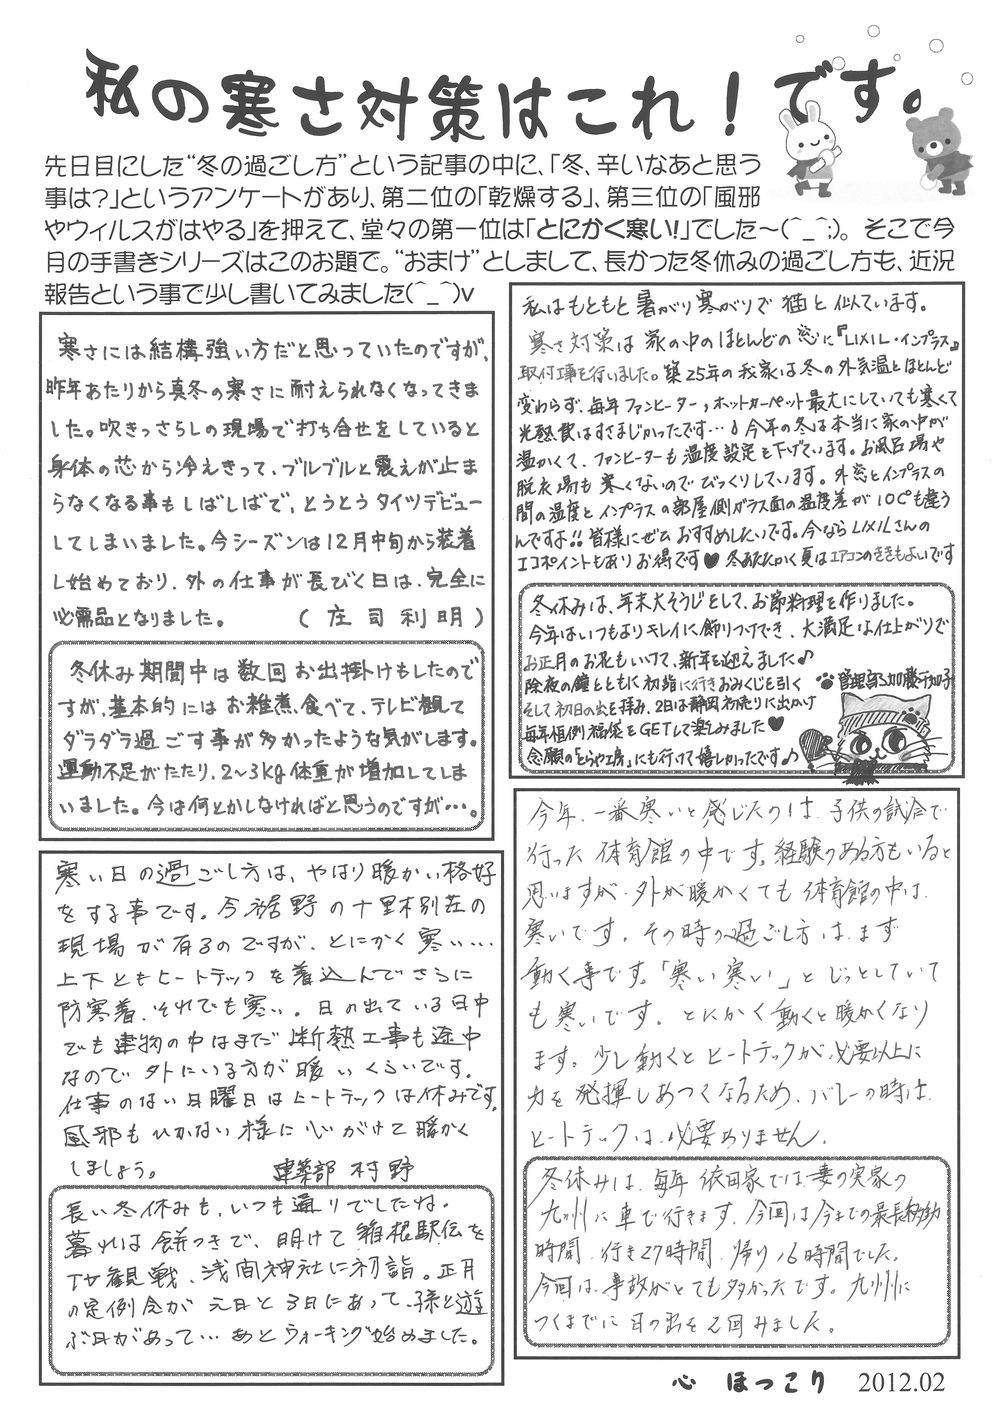 私の寒さ対策はこれ！です。
先日目にした“冬の過ごし方”という記事の中に、「冬、辛いなあと思う
事は？」というアンケートがあり、第二位の「乾燥する」、第三位の「風邪
やウィルスがはやる」を押えて、堂々の第一位は「とにかく寒い!」でした～(^_^;)。そこで今
月の手書きシリーズはこのお題で。“おまけ”としまして、長かった冬休みの過ごし方も、近況
報告という事で少し書いてみました(^_^)v
寒さには結構強い方だと思っていたのですが、
昨年あたりから真冬の寒さに耐えられなくなってきま
した。吹きっさらしの現場で打ち合せをしていると
身体の芯から冷えきって、ブルブルと震えが止ま
らなくなる事もしばしばで、とうとうタイツデビュー
してしまいました。今シーズンは12月中旬から装着
し始めており、外の仕事が長びく日は、完全に
必需品となりました。 （庄司利明）
冬休み期間中は数回お出掛けもしたので
すが、基本的にはお雑煮、食べて、テレビ観て
ダラダラ過ごす事が多かったような気がします。
運動不足がたたり、2～3kg体重が増加してしま
いました。今は何とかしなければと思うのですが…。
私はもともと暑がり寒がりで猫と似ています。
寒さ対策は家の中のほとんどの窓に『LIXIL・インプラス』
取付工事を行いました。築25年の我家は冬の外気温とほとんど
変わらず、毎年ファンヒーター、ホットカーペット最大にしていても寒くて
光熱費はすさまじかったです…今年の冬は本当に家の中が
温かくて、ファンヒーターも温度設定を下げています。お風呂場や
脱衣場も寒くないのでびっくりしています。外窓とインプラスの
間の温度とインプラスの部屋側ガラス面の温度差が10℃も違う
んですよ!!皆様にぜひおすすめしたいです。今ならLIXILさんの
エコポイントもありお得です♥冬あたたかく夏はエアコンのききもよいです
冬休みは、年末大そうじをして、お節料理を作りました。
今年はいつもよりキレイに飾りつけでき、大満足な仕上がりで
お正月のお花もいけて、新年を迎えました♪
除夜の鐘とともに初詣に行きおみくじを引く
管理部 加藤千加子
そして初日の出を拝み、2日は静岡初売りに出かけ
毎年恒例、福袋をGETして楽しみました♥
念願の「とらや工房」にも行けて嬉しかったです♪
寒い日の過ごし方は、やはり暖かい格好
をする事です。今裾野の十里木別荘の
現場が有るのですが、とにかく寒い…
上下ともヒートテックを着込んでさらに
防寒着、それでも寒い。日の出ている日中
でも建物の中はまだ断熱工事も途中
なので外にいる方が暖いくらいです。
仕事のない日曜日はヒートテックは休みです。
風邪もひかない様に心がけて暖かく
しましょう。 建築部 村野
長い冬休みも、いつも通りでしたね。
暮れは餅つきで、明けて箱根駅伝を
TV観戦、浅間神社に初詣。正月
の定例会が元日と3日にあって、孫と遊
ぶ日があって…あとウォーキング始めました。
今年、一番寒いと感じたのは、子供の試合で
行った体育館の中です。経験のある方もいると
思いますが、外が暖かくても体育館の中は、
寒いです。その時の過ごし方は、まず
動く事です。「寒い寒い」とじっとしていて
も寒いです。とにかく動くと暖かくなり
ます。少し動くとヒートテックが必要以上に
力を発揮しあつくなるため、バレーの時は、
ヒートテックは、必要ありません。
冬休みは、毎年依田家では妻の実家の
九州に車で行きます。今回は今までの最長移動
時間、行き27時間、帰り16時間でした。
今回は、事故がとても多かったです。九州に
つくまでに日の出を2回みました。
心 ほっこり 2012.02